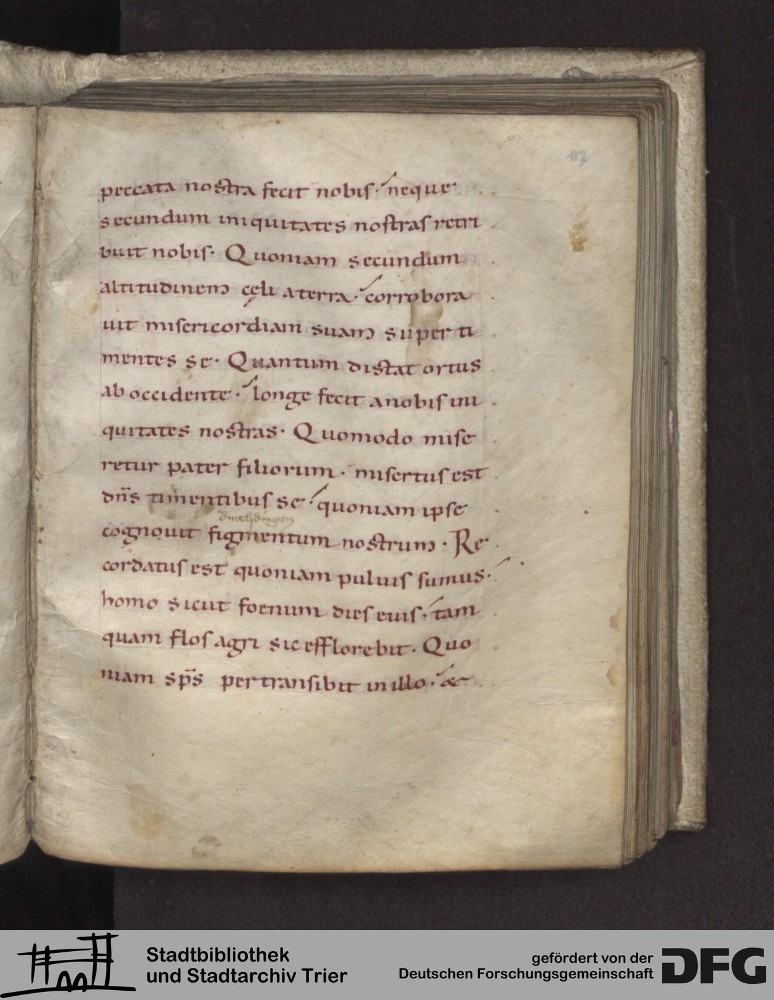 peccata nostra fecit nobis· neque
secundum iniquitates nostras retri
buit nobis· Quoniam secundum
altitudinem celi aterra· corrobora
uit misericordiam suam super ti
mentes se· Quantum distat ortus
ab occidente· longe fecit anobis ini
quitates nostras· Quomodo mise
retur pater filiorum· misertus est
dn̄s timentibus se· quoniam ipse
cognouit figmentum nostrum· Re
cordatus est quoniam puluis sumus·
homo sicut foenum dies eius· tam
quam flos agri sic efflorebit· Quo
niam sp̄s pertransibit in illo· &
Stadtbibliothek
und Stadtarchiv Trier
gefördert von der
Deutschen Forschungsgemeinschaft
DFG